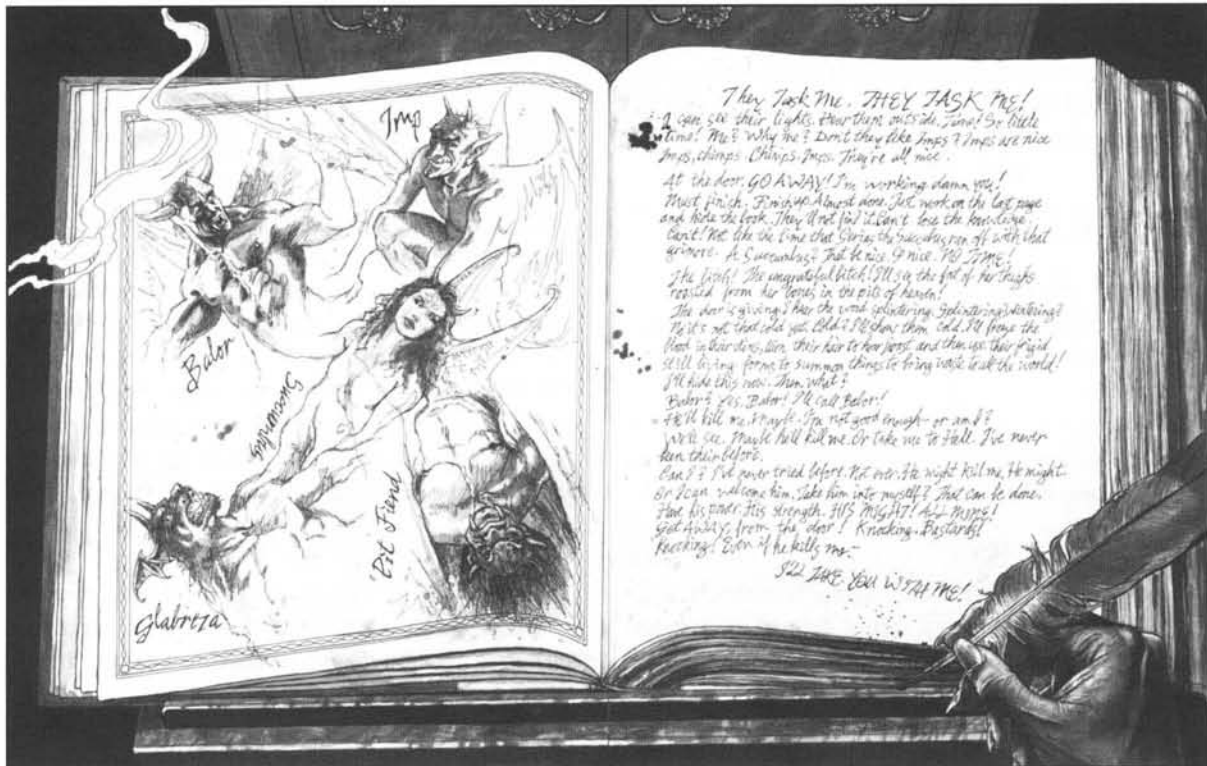 Imp
Balor
Succubus
Pit Fiend
Glabreza
They Task Me. THEY TASK ME!
I can see their lights. Hear them outside. Time! So little
time! Me? Why me? Don't they like Imps? Imps are nice
Imps, chimps. Chimps. Imps. They're all nice.
At the door. GO AWAY! I'm working damn you!
Must finish. Finish up. Almost done. Just work on the last page
and hide the book. They'll not find it. Can't lose the knowledge
Can't! Not like the time that the ran off with that
grimoire. A Succumbus? That be nice. So nice. NO TIME!
The bitch. The ungrateful bitch! I'll the fat of her thighs
roasted from her bones in the pits of heaven!
The door is giving. I hear the wood splintering. Splintering? Wintering?
No it's not that cold yet. Cold? I'll show them cold. I'll freeze the
blood in their their hair to hoar frost and then use their frigid
still living forms to summon things to bring waste to all the world!
I'll hide this now. Then what?
Balor? Yes, Balor! I'll call Balor!
He'll kill me. Maybe. I'm not good enough - or am I?
We'll see. Maybe he'll kill me. Or take me to Hell. I've never
been their before.
Can I? I've never tried before. Not ever. He might kill me. He might.
Or I can welcome him. Take him into myself? That can be done.
Have his power. His strength. HIS MIGHT! ALL MINE!
Get AWAY from the door! Knocking. Bastards!
Knocking! Even if he kills me-
I'LL TAKE YOU WITH ME!